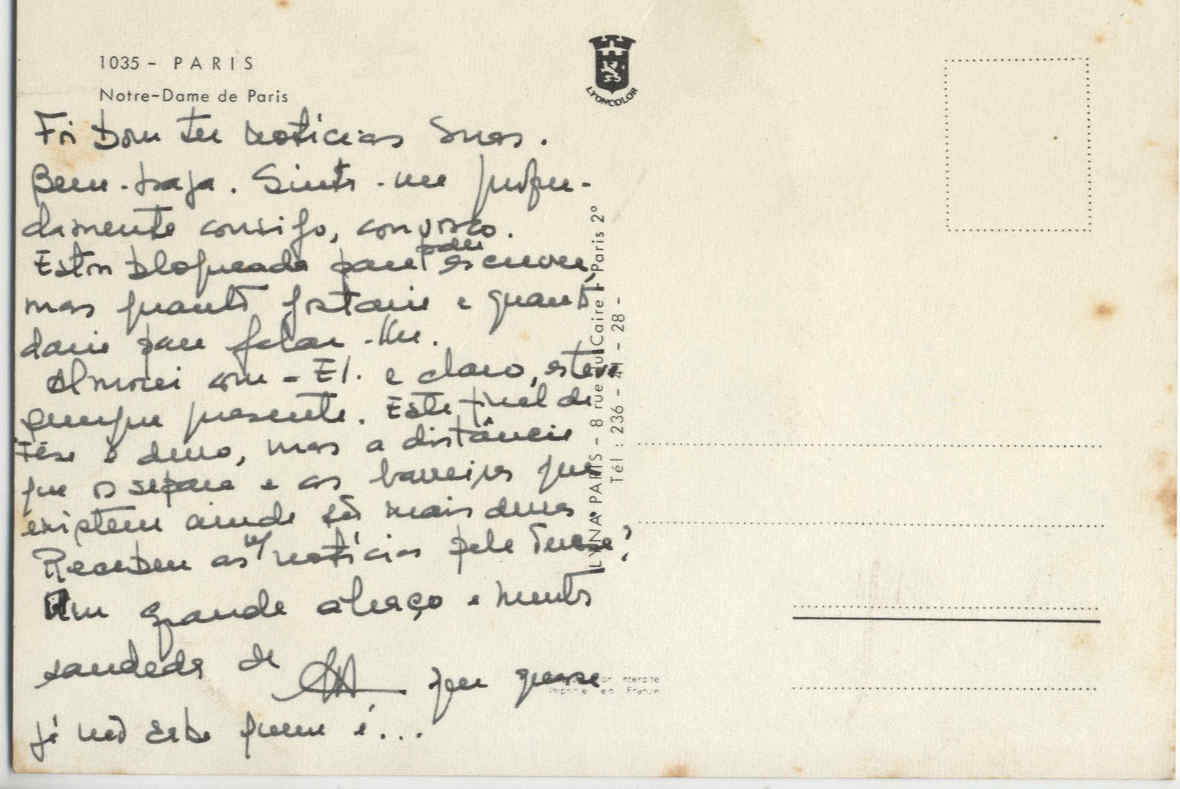 1035 - PARIS
Notre-Dame de Paris
LYONCOLOR
Foi bom ter notícias suas.
Bem-haja. Sinto-me profun-
damente consigo, convosco.
Estou bloqueada para poder escrever,
mas quanto gostaria e quanto
daria para falar-lhe.
Almocei com - El. e claro, esteve
sempre presente. Este final de
Tése é duro, mas a distância
que os separa e as barreiras que
existem ainda são mais duras.
Receberam as notícias pela
Um grande abraço e muita
saudade de que quase
já não sabe quem é...
LYNA PARIS - 8 rue du Caire - Paris 2º
Tél : 236 - 28 -
interdite
Imprimé en France